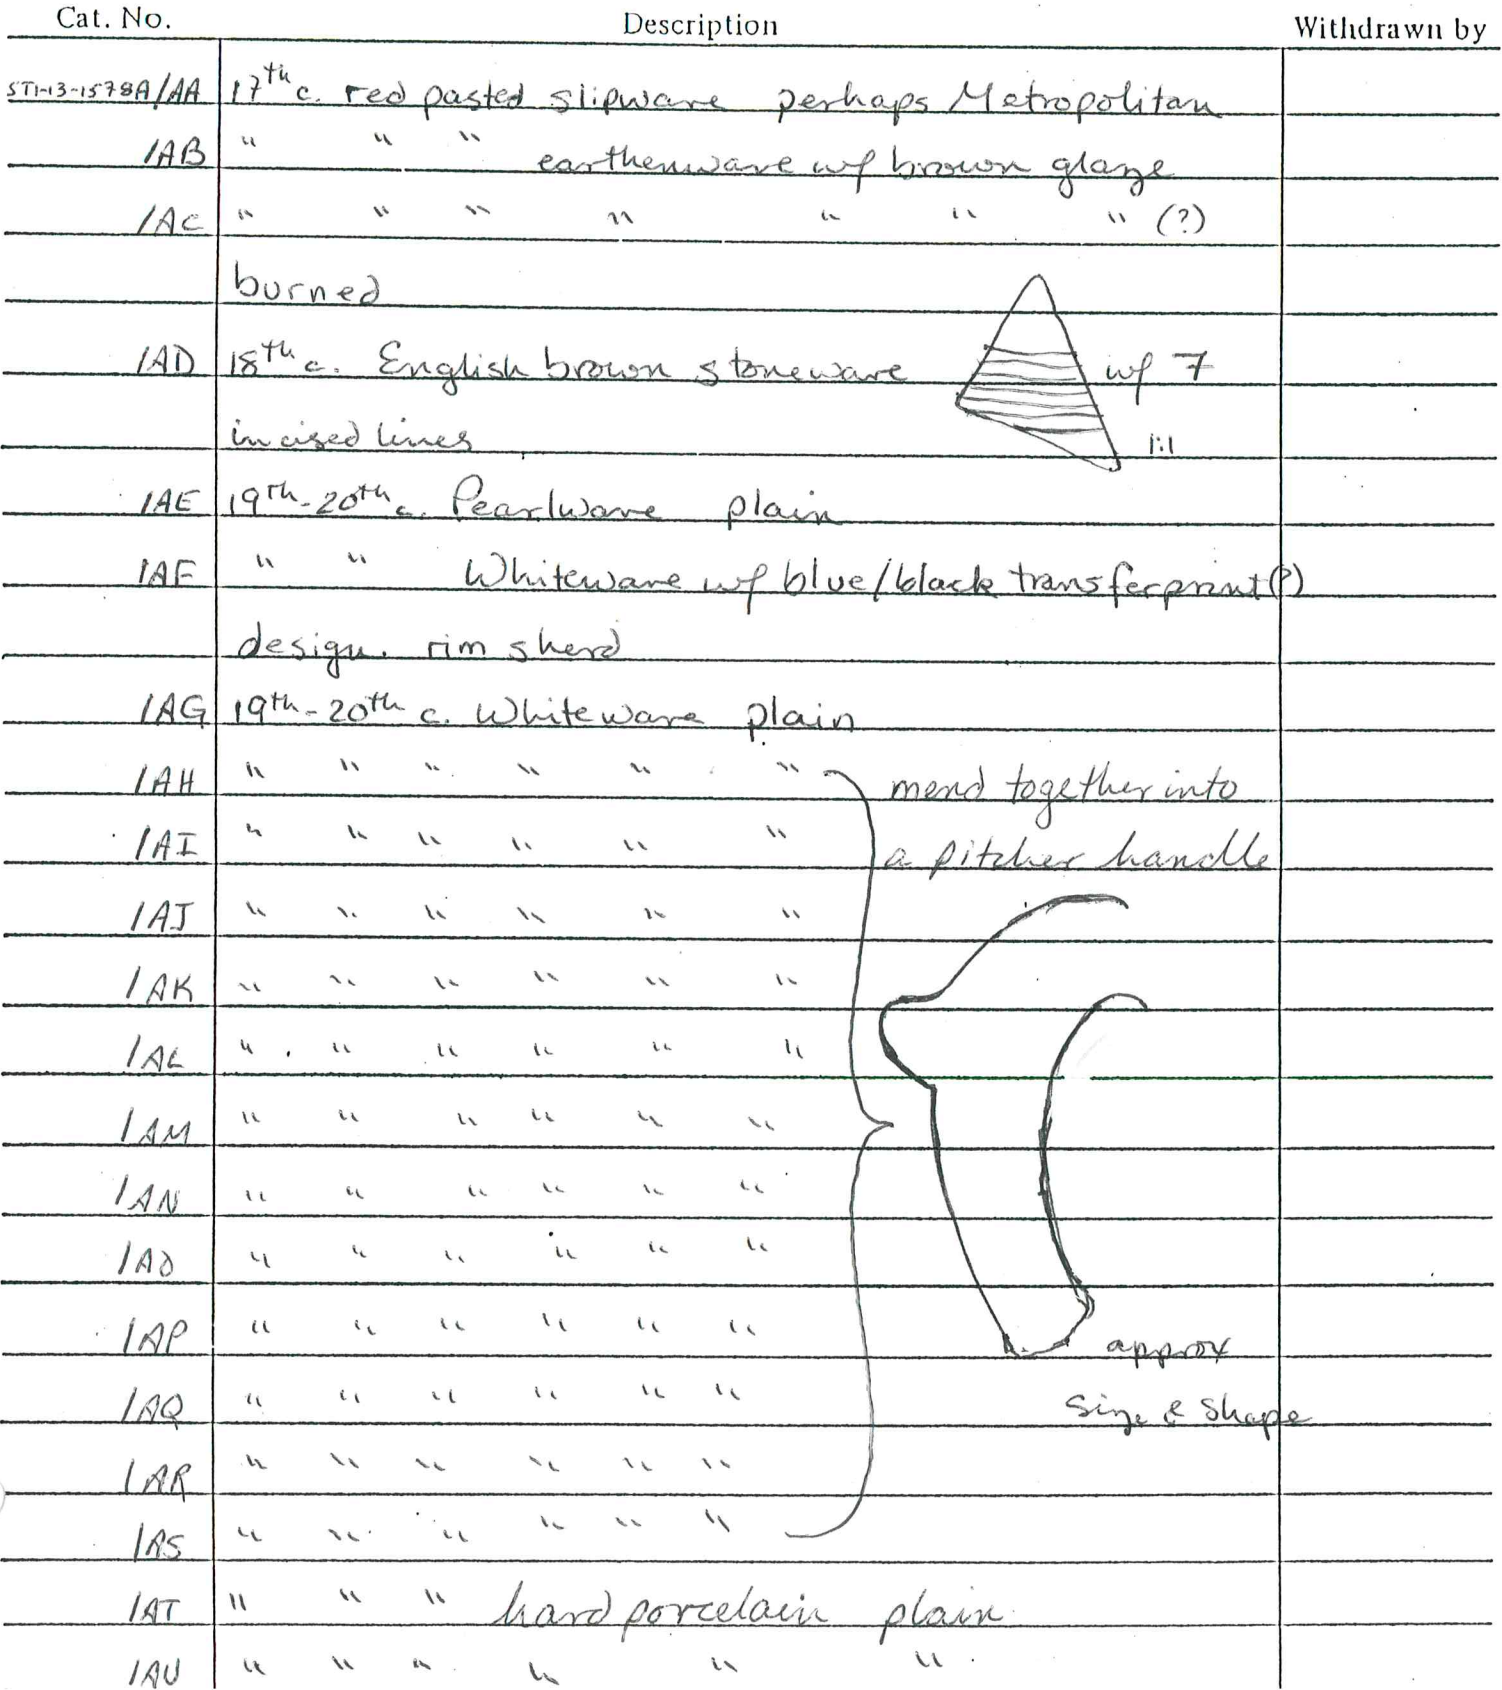 Cat. No. Description Withdrawn by
ST1-13-1578A/AA 17th c. red pasted slipware perhaps Metropolitan
/AB " " " earthenware w/ brown glaze
/AC " " " " " " " (?)
burned
/AD 18th c. English brown stoneware w/ 7
incised lines 1:1
/AE 19th-20th c. Pearlware plain
/AF " " Whiteware w/ blue/black transferprint(?)
design. rim sherd
/AG 19th-20th c. Whiteware plain
/AH " " " " " " mend together into
/AI " " " " " " a pitcher handle
/AJ " " " " " "
/AK " " " " " "
/AL " " " " " "
/AM " " " " " "
/AN " " " " " "
/AO " " " " " "
/AP " " " " " " approx
/AQ " " " " " " size & shape
/AR " " " " " "
/AS " " " " " "
/AT " " " hard porcelain plain
/AU " " " " " "